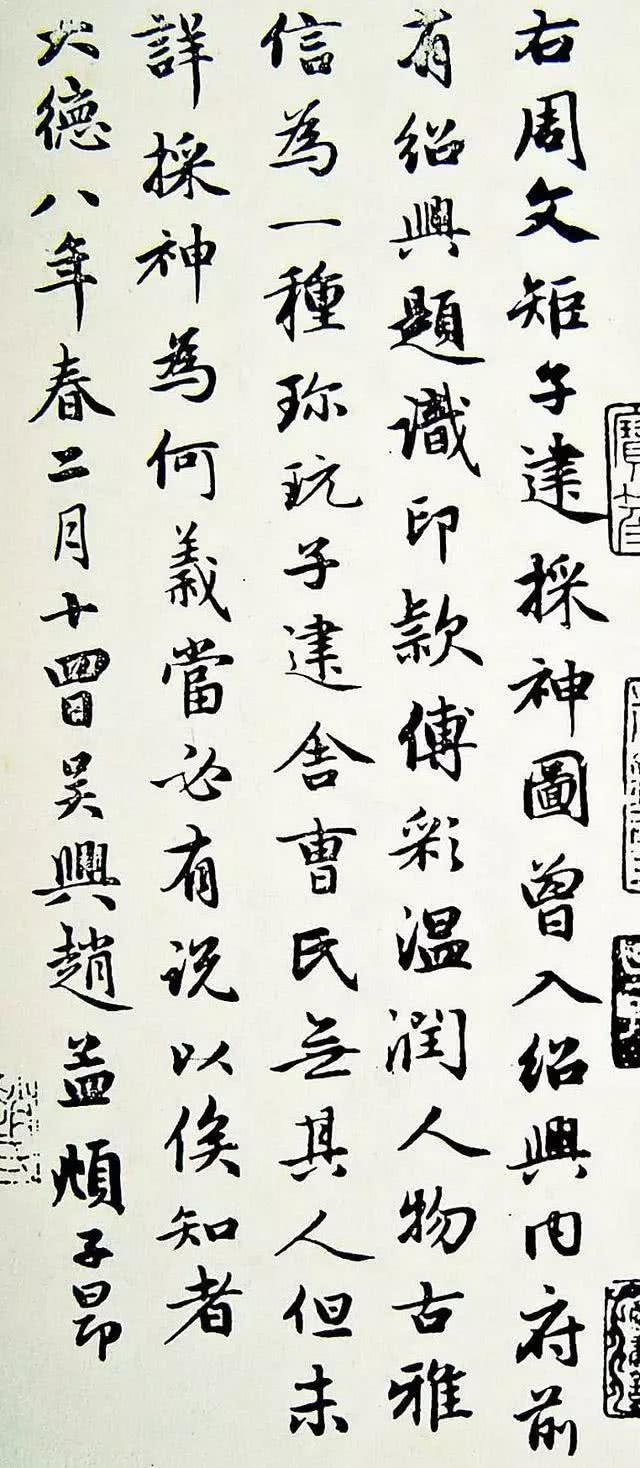 右周文矩子建採神圖曾入紹興内府前
有紹興題識印款傅彩温潤人物古雅
信為一種珎玩子建舍曹氏无其人但未
詳採神為何義當必有説以俟知者
大德八年春二月十四日吴興趙孟頫子昂